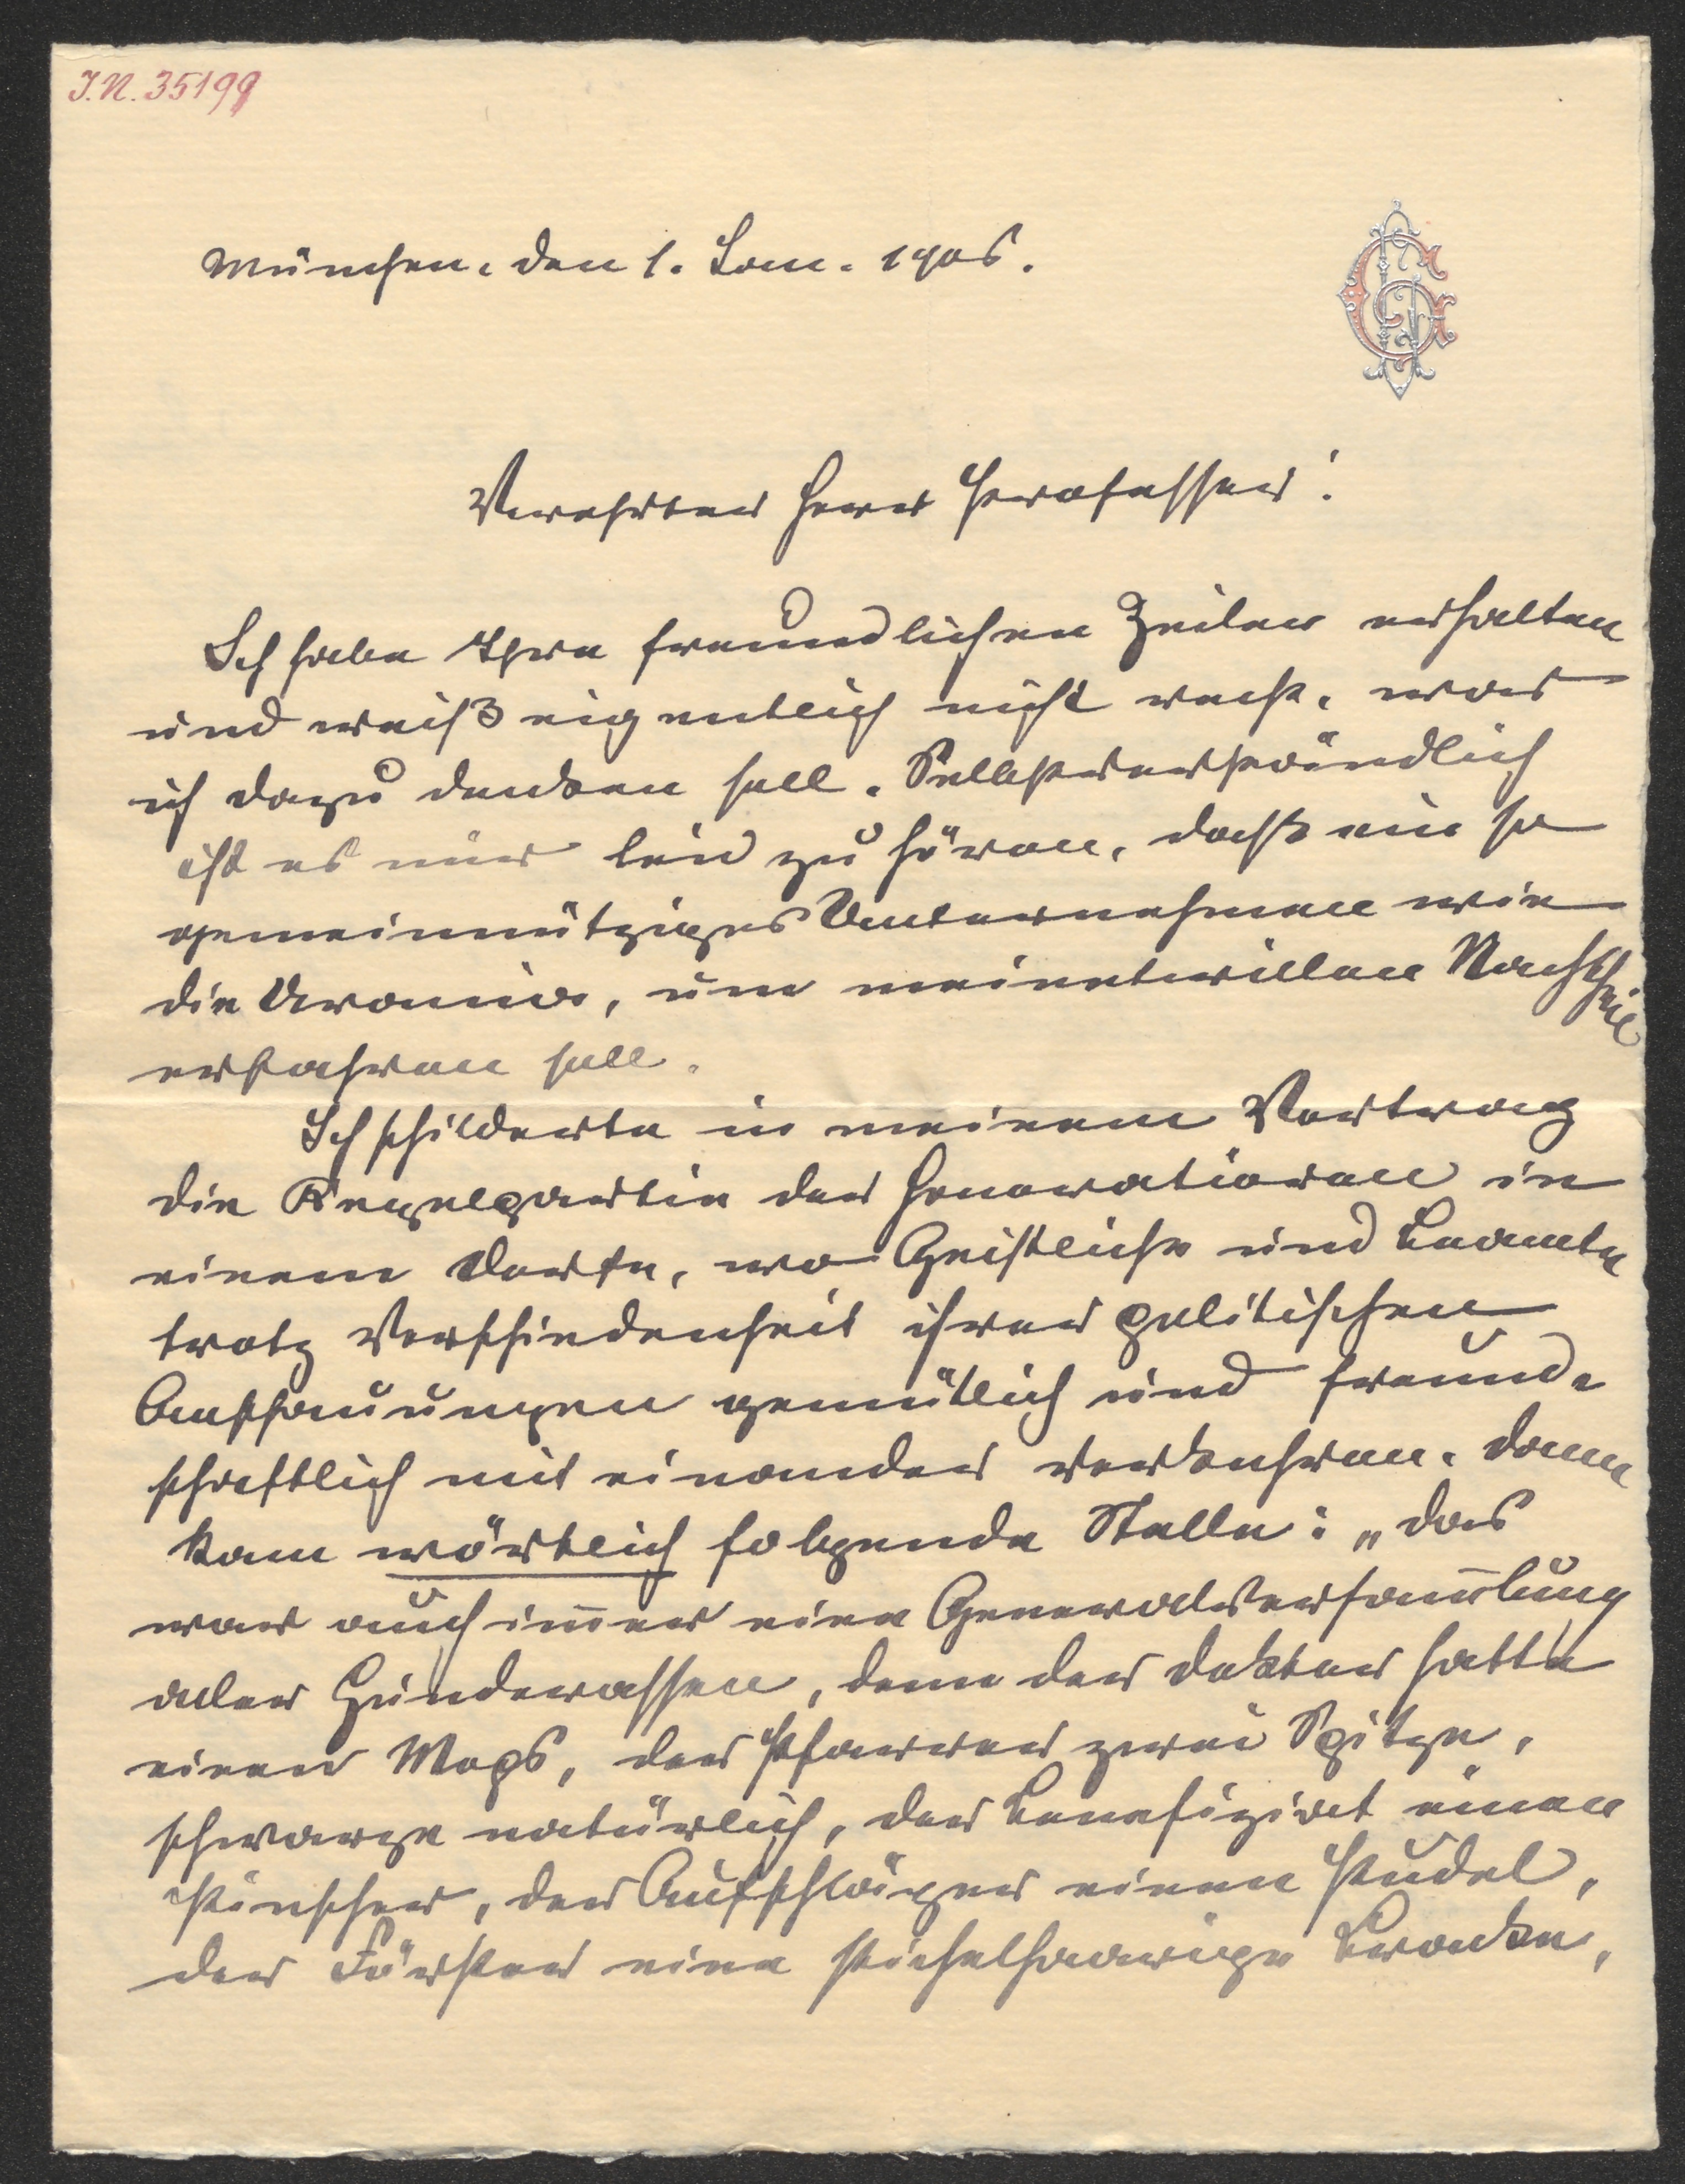 I.N. 35199
München, den 1. Jan. 1906.
Verehrter Herr Professor!
Ich habe Ihre freundlichen Zeilen erhalten
und weiß eigentlich nicht recht, was
ich dazu denken soll. Selbstverständlich
ist es mir leid zu hören, daß ein so
gemeinnütziges Unternehmen wie
die Urania, um meinetwillen Nachtheil
erfahren soll.
Ich schilderte in meinem Vortrag
die Kegelpartie der Honoratioren in
einem Dorfe, wo Geistliche und Beamte
trotz Verschiedenheit ihrer politischen
Anschauungen gemütlich und freund-
schaftlich mit einander verkehren. Dann
kam wörtlich folgende Stelle: „Das
war auch im̅er eine Generalversam̅lung
aller Hunderassen, denn der Doktor hatte
einen Mops, der Pfarrer zwei Spitze,
schwarze natürlich, der Benefiziat einen
Pinscher, der Aufschläger einen Pudel,
der Förster eine stichelhaarige Bracke,